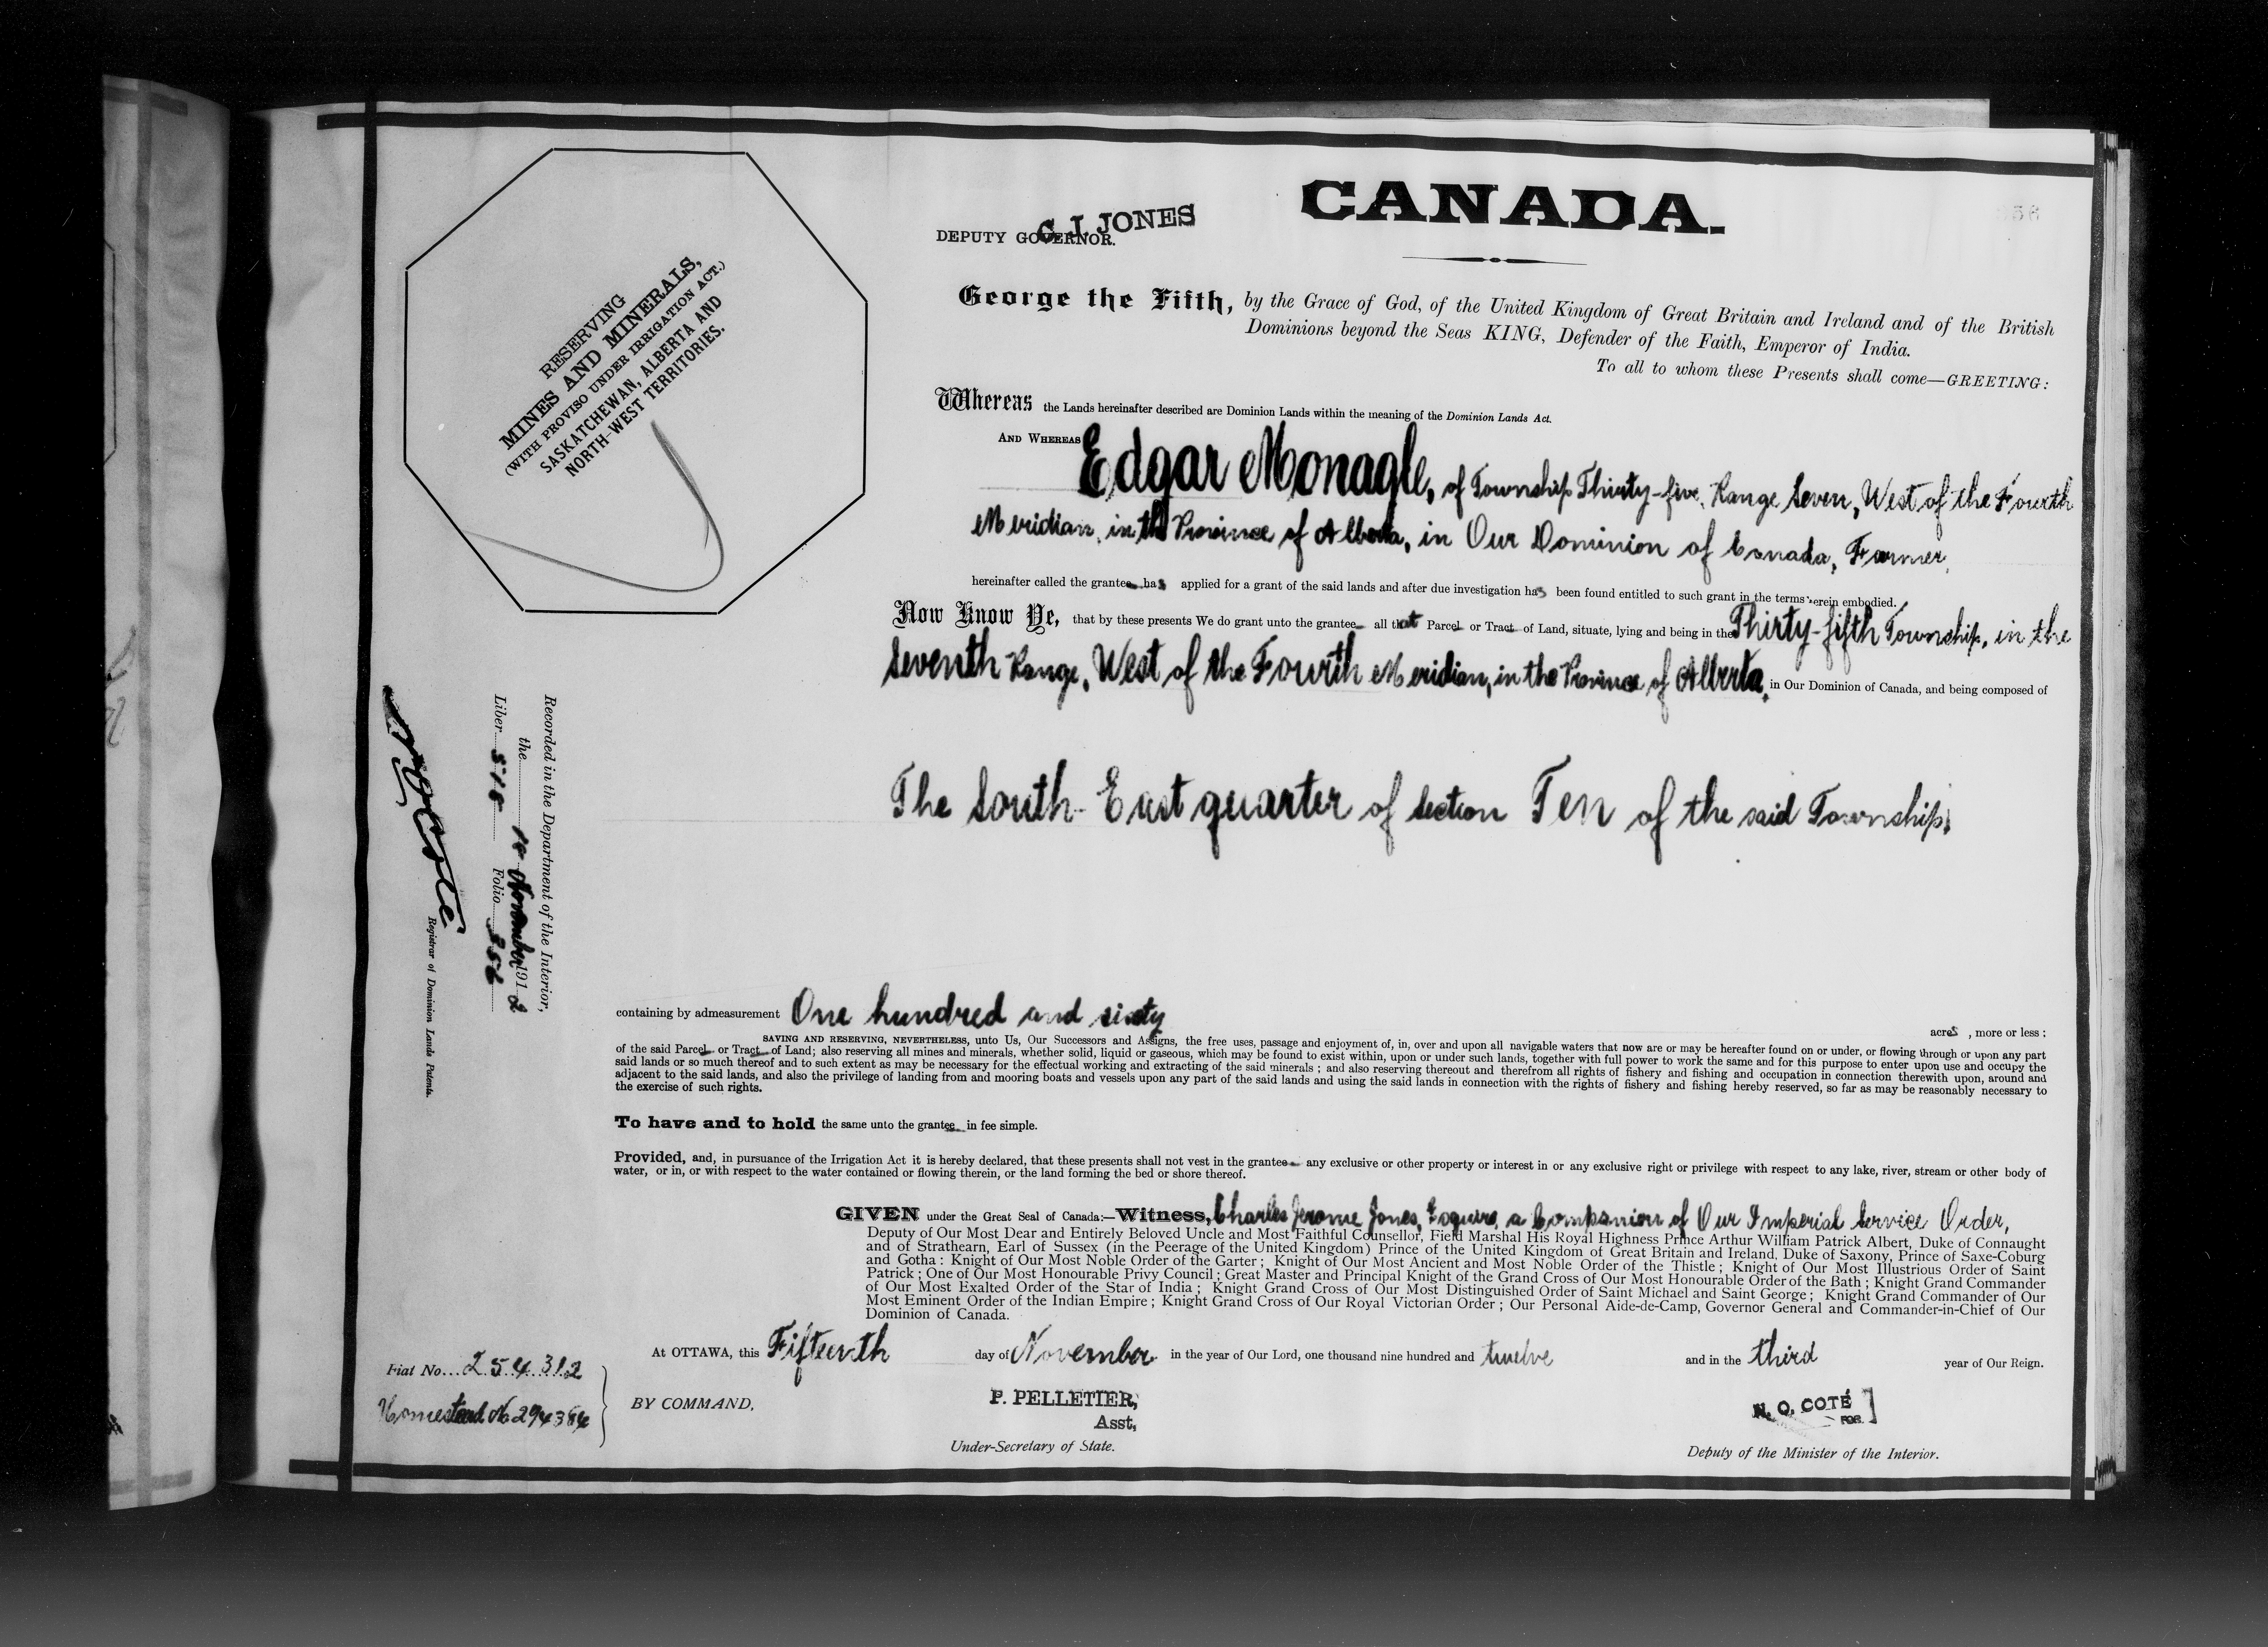 CANADA.
C. J. JONES
DEPUTY GOVERNOR.
RESERVING
MINES AND MINERALS,
(WITH PROVISO UNDER IRRIGATION ACT.)
SASKATCHEWAN, ALBERTA AND
NORTH-WEST TERRITORIES.
George the Fifth, by the Grace of God, of the United Kingdom of Great Britain and Ireland and of the British
Dominions beyond the Seas KING, Defender of the Faith, Emperor of India.
To all to whom these Presents shall come—GREETING:
Whereas the Lands hereinafter described are Dominion Lands within the meaning of the Dominion Lands Act.
AND WHEREAS Edgar Monagle, of Township Thirty-five, Range Seven, West of the Fourth
Meridian, in the Province of Alberta, in Our Dominion of Canada, Farmer,
hereinafter called the grantee has applied for a grant of the said lands and after due investigation has been found entitled to such grant in the terms herein embodied.
Now Know Ye, that by these presents We do grant unto the grantee all that Parcel or Tract of Land, situate, lying and being in the Thirty-fifth Township, in the
Seventh Range, West of the Fourth Meridian, in the Province of Alberta, in Our Dominion of Canada, and being composed of
The South-East quarter of Section Ten of the said Township,
Recorded in the Department of the Interior,
the 18 November 1912
Liber 518 Folio 356
N O Coté
Registrar of Dominion Lands Patents.
containing by admeasurement One hundred and sixty acres , more or less :
SAVING AND RESERVING, NEVERTHELESS, unto Us, Our Successors and Assigns, the free uses, passage and enjoyment of, in, over and upon all navigable waters that now are or may be hereafter found on or under, or flowing through or upon any part
of the said Parcel or Tract of Land; also reserving all mines and minerals, whether solid, liquid or gaseous, which may be found to exist within, upon or under such lands, together with full power to work the same and for this purpose to enter upon use and occupy the
said lands or so much thereof and to such extent as may be necessary for the effectual working and extracting of the said minerals ; and also reserving thereout and therefrom all rights of fishery and fishing and occupation in connection therewith upon, around and
adjacent to the said lands, and also the privilege of landing from and mooring boats and vessels upon any part of the said lands and using the said lands in connection with the rights of fishery and fishing hereby reserved, so far as may be reasonably necessary to
the exercise of such rights.
To have and to hold the same unto the grantee in fee simple.
Provided, and, in pursuance of the Irrigation Act it is hereby declared, that these presents shall not vest in the grantee any exclusive or other property or interest in or any exclusive right or privilege with respect to any lake, river, stream or other body of
water, or in, or with respect to the water contained or flowing therein, or the land forming the bed or shore thereof.
GIVEN under the Great Seal of Canada:—Witness, Charles Jerome Jones, Esquire, a Companion of Our Imperial Service Order,
Deputy of Our Most Dear and Entirely Beloved Uncle and Most Faithful Counsellor, Field Marshal His Royal Highness Prince Arthur William Patrick Albert, Duke of Connaught
and of Strathearn, Earl of Sussex (in the Peerage of the United Kingdom) Prince of the United Kingdom of Great Britain and Ireland, Duke of Saxony, Prince of Saxe-Coburg
and Gotha : Knight of Our Most Noble Order of the Garter ; Knight of Our Most Ancient and Most Noble Order of the Thistle ; Knight of Our Most Illustrious Order of Saint
Patrick ; One of Our Most Honourable Privy Council ; Great Master and Principal Knight of the Grand Cross of Our Most Honourable Order of the Bath ; Knight Grand Commander
of Our Most Exalted Order of the Star of India ; Knight Grand Cross of Our Most Distinguished Order of Saint Michael and Saint George ; Knight Grand Commander of Our
Most Eminent Order of the Indian Empire ; Knight Grand Cross of Our Royal Victorian Order ; Our Personal Aide-de-Camp, Governor General and Commander-in-Chief of Our
Dominion of Canada.
At OTTAWA, this Fifteenth day of November in the year of Our Lord, one thousand nine hundred and twelve and in the third year of Our Reign.
Fiat No. 254312
Homestead No 294384
BY COMMAND,
P. PELLETIER,
Asst,
Under-Secretary of State.
N. O. COTÉ
FOR
Deputy of the Minister of the Interior.